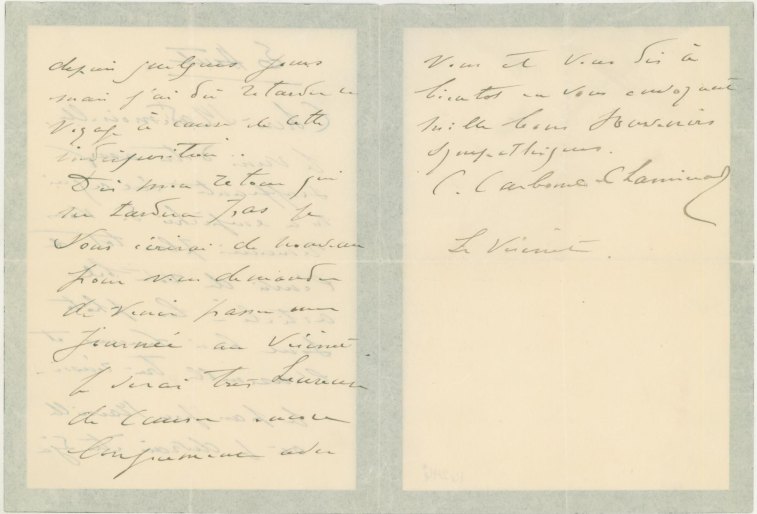 depuis quelques jours
mais j'ai dû retarder ce
voyage à cause de cette
indisposition.
Dès mon retour qui
ne tardera pas je
vous écrirai de nouveau
pour vous demander
de venir passer une
journée au Vésinet
Je serai très heureuse
de causer encore
longuement avec
vous et vous dis à
bientôt en vous envoyant
mille bons souvenirs
sympathiques.
C. Carbonel Chaminade
Le Vésinet.